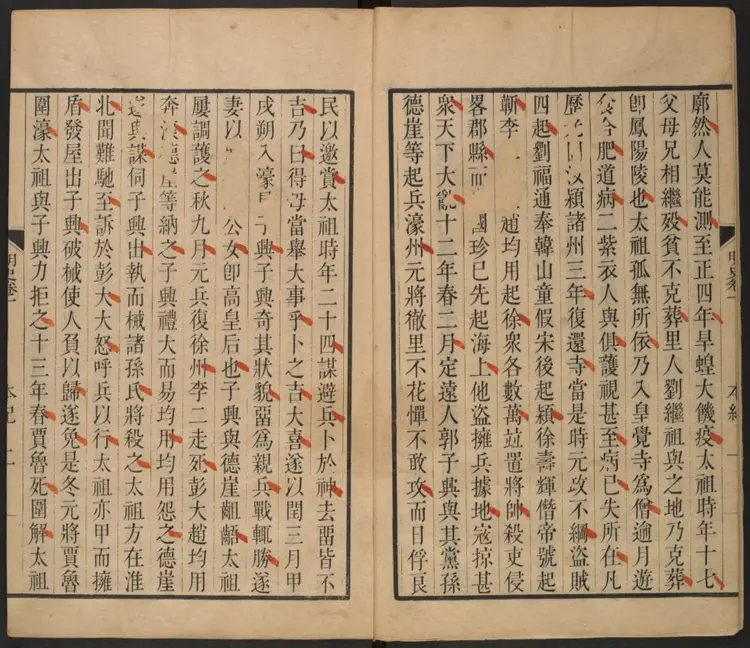 廓然人莫能測至正四年旱蝗大饑疫太祖時年十七
父母兄相繼歿貧不克葬里人劉繼祖與之地乃克葬
卽鳳陽陵也太祖孤無所依乃入皇覺寺爲僧逾月遊
合肥道病二紫衣人與俱護視甚至病已失所在凡
歷汝潁諸州三年復還寺當是時元政不綱盜賊
四起劉福通奉韓山童假宋後起潁徐壽輝僭帝號起
蘄李趙均用起徐衆各數萬竝置將帥殺吏侵
畧郡縣而國珍已先起海上他盜擁兵據地寇掠甚
衆天下大亂十二年春二月定遠人郭子興與其黨孫
德崖等起兵濠州元將徹里不花憚不敢攻而日俘良
明史卷一
本紀
一
明史卷一
本紀
二
民以邀賞太祖時年二十四謀避兵卜於神去畱皆不
吉乃曰得毋當舉大事乎卜之吉大喜遂以閏三月甲
戌朔入濠子興子興奇其狀貌畱爲親兵戰輒勝遂
妻以公女卽高皇后也子興與德崖齟齬太祖
屢調護之秋九月元兵復徐州李二走死彭大趙均用
奔濠德崖等納之子興禮大而易均用均用怨之德崖
遂與謀伺子興出執而械諸孫氏將殺之太祖方在淮
北聞難馳至訴於彭大大怒呼兵以行太祖亦甲而擁
盾發屋出子興破械使人負以歸遂免是冬元將賈魯
圍濠太祖與子興力拒之十三年春賈魯死圍解太祖